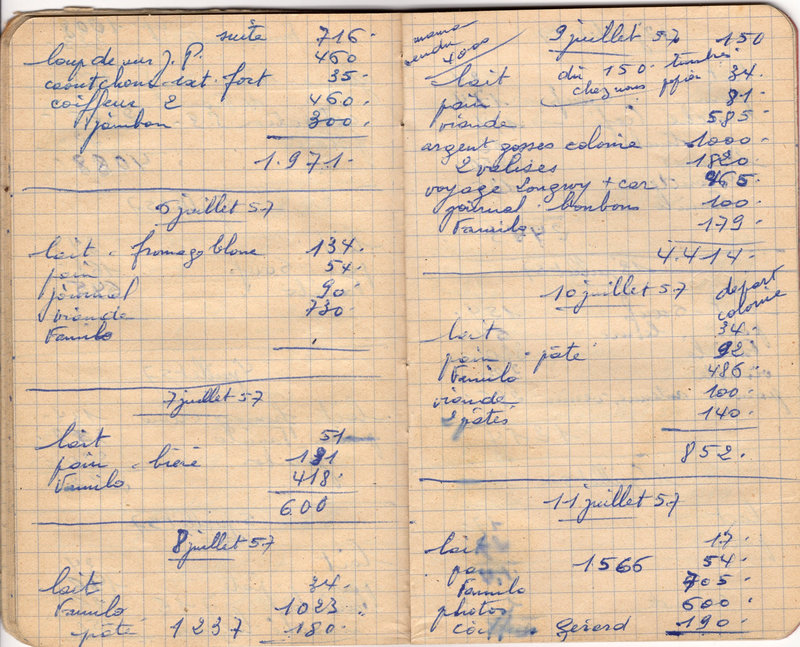 suite 716.
loup de sur J.P. 460
caoutchouc ext. fort 35.
coiffeur 2 460.
jambon 300.
1.971.
6 juillet 57
lait . fromage blanc 134.
pain 54.
journal 90.
viande 730.
Familo
7 juillet 57
lait 51
pain . bière 131
Familo 418.
600
8 juillet 57
lait 34.
Familo 1023
pâté 1237 180.
mama
rendu
4000
9 juillet 57 150
timbres
lait dû 150. papier 34.
chez nous
pain 81.
viande 585.
argent gosses colonie 1000.
2 valises 1820.
voyage Longwy + car 465.
journal . bonbons 100.
Familo 179.
4.414.
10 juillet 57 départ
colonie
lait 34.
pain . pâté 92.
Familo 486.
viande 100.
2 pâtés 140.
852.
11 juillet 57
lait 17.
pain 1566 54.
Familo 705.
photos 600.
coiffeur Gérard 190.